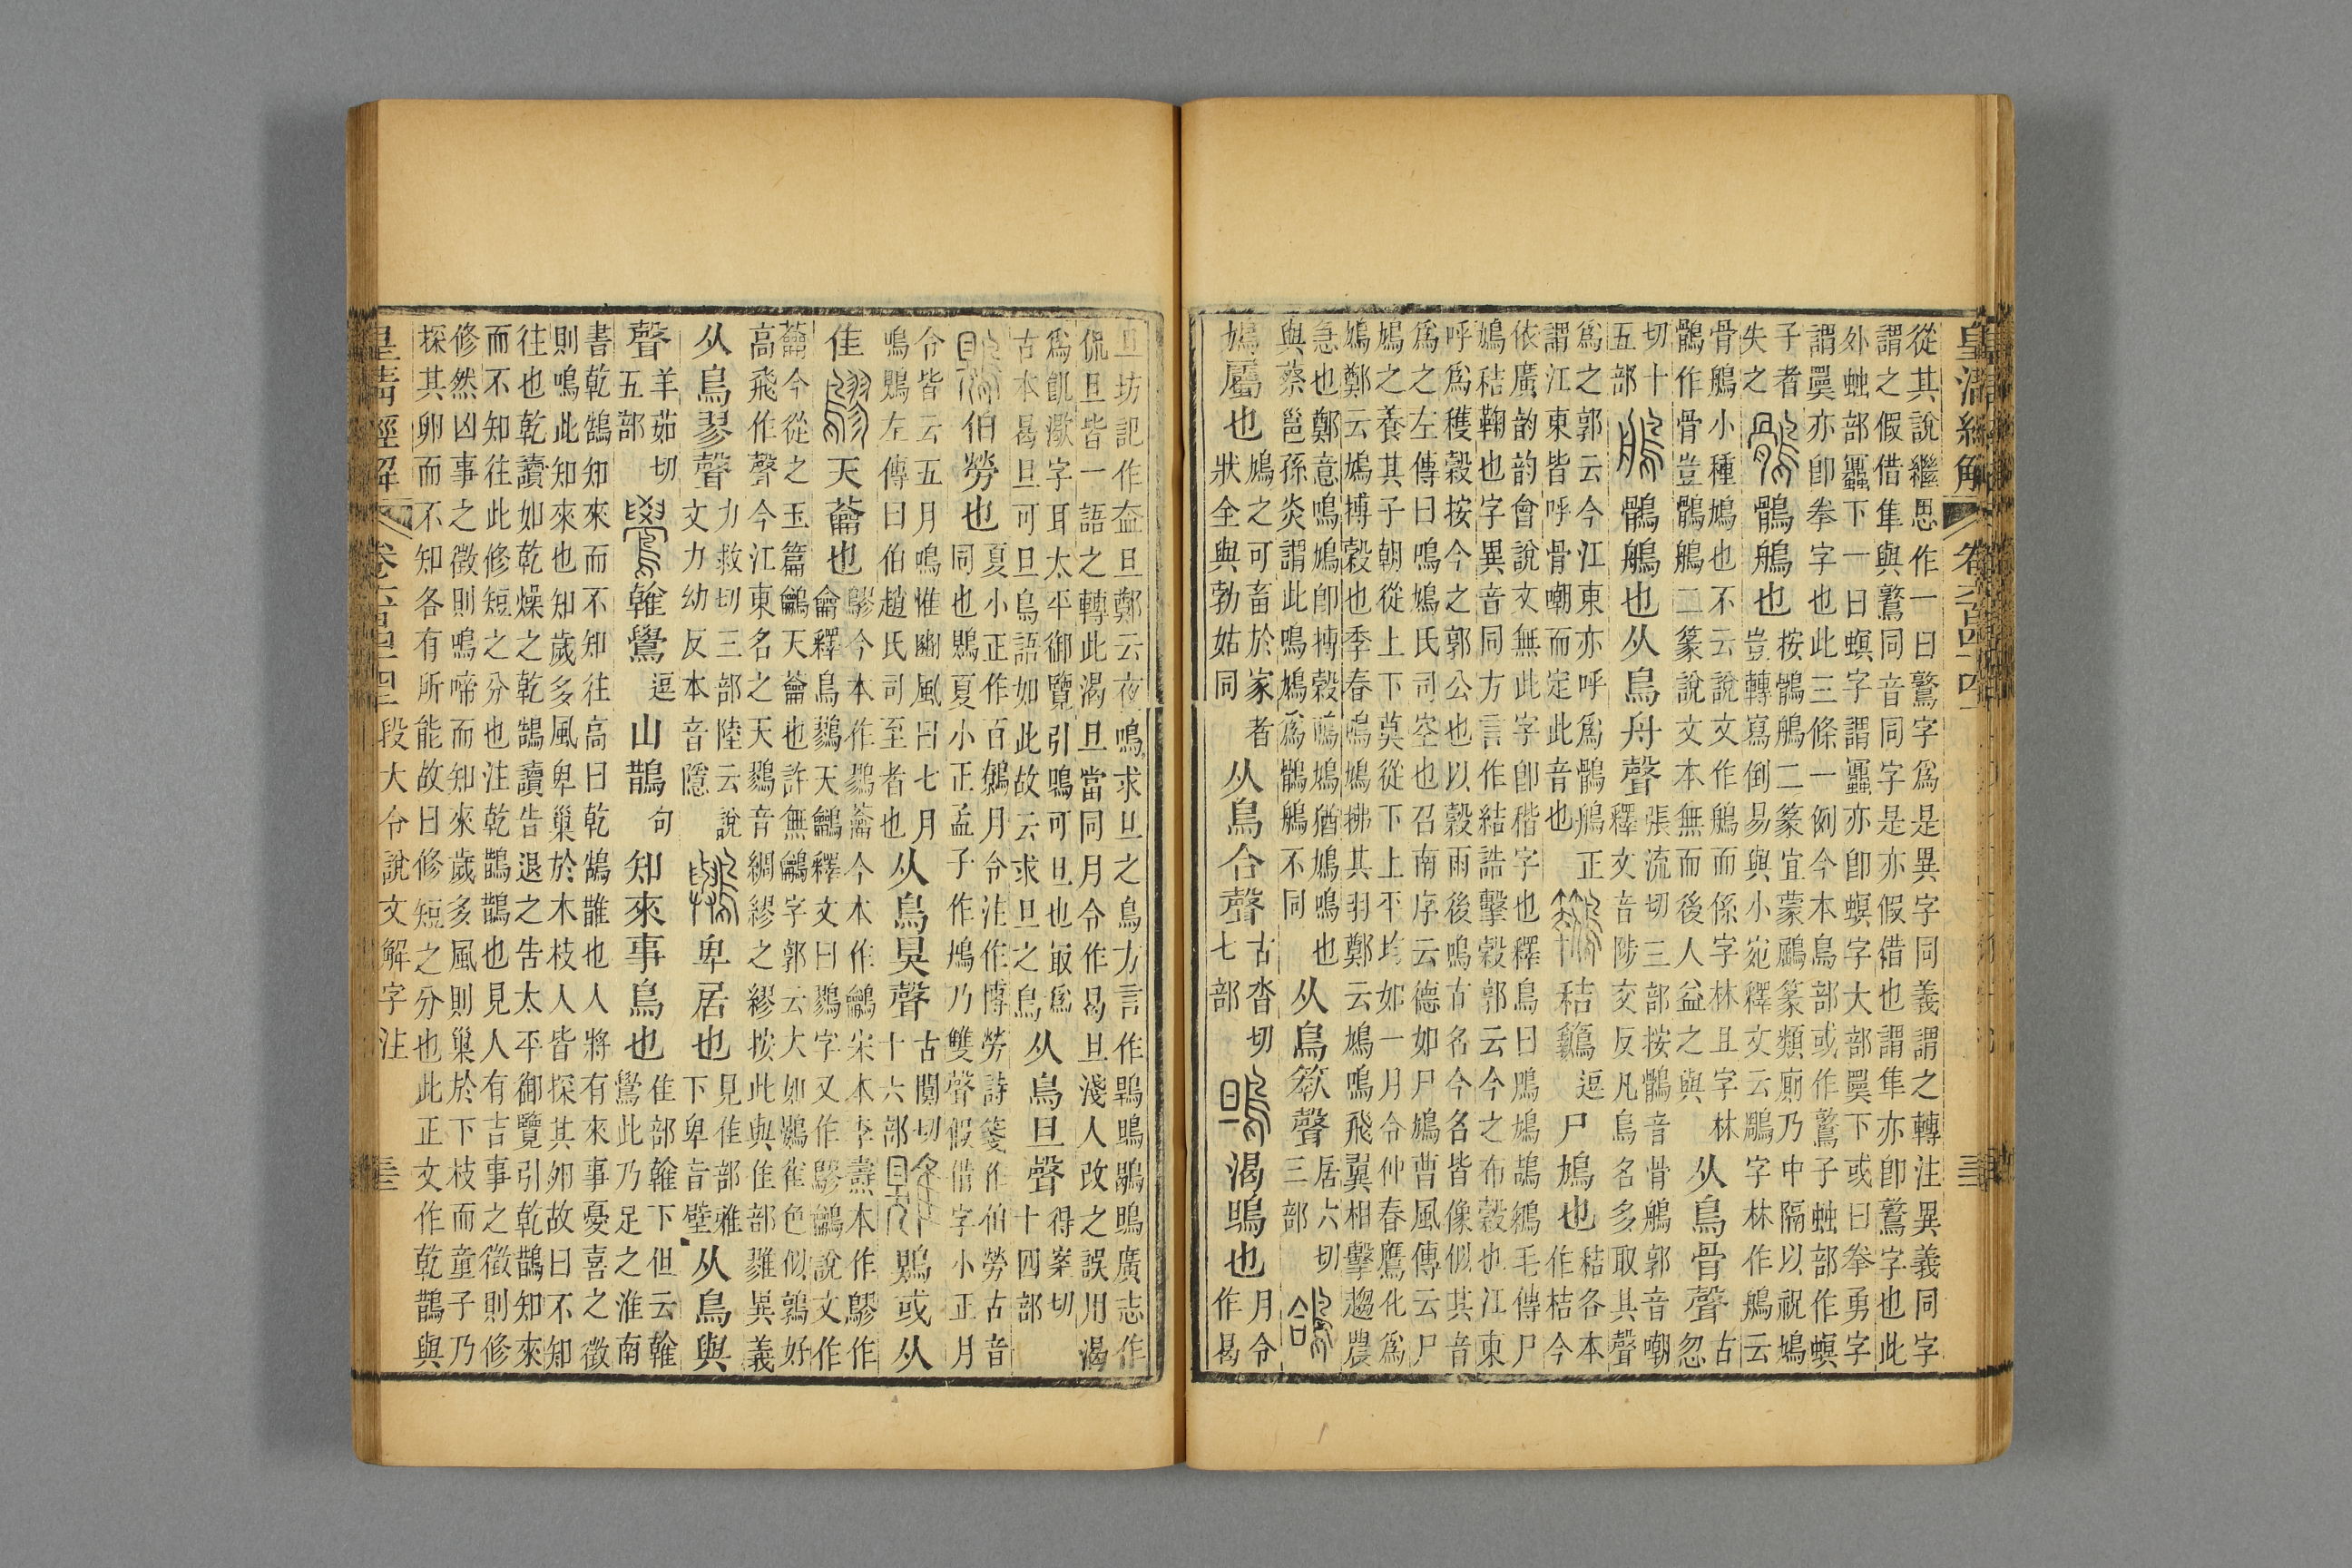 皇清經解 卷六百四十四
從其說繼恩作一曰鷙字爲是異字同義謂之轉注異義同字
謂之假借隼與鷙同音同字是亦假借也謂隼亦卽鷙字也此
外䖵部蠠下一曰螟字謂蠠亦卽螟字大部䙴下或曰拳勇字
謂䙴亦卽拳字也此三條一例今本鳥部或作鷙子䖵部作螟
子者
失之
鶻 鶻鵃也
按鶻鵃二篆宜蒙鷫篆類廁乃中隔以祝鳩
豈轉寫倒易與小宛釋文云鵰字林作鵃云
骨鵃小種鳩也不云說文作鵃而係字林且字林
鶻作骨豈鶻鵃二篆說文本無而後人益之與
从鳥骨聲
古
忽
切十
五部
鵃 鶻鵃也从鳥舟聲
張流切三部按鶻音骨鵃郭音嘲
釋文音陟交反凡鳥名多取其聲
爲之郭云今江東亦呼爲鶻鵃正
謂江東皆呼骨嘲而定此音也
秸鵴 逗 尸鳩也
秸各本
作桔今
依廣韵韵會說文無此字卽稭字也釋鳥曰鳲鳩鴶鵴毛傳尸
鳩秸鞠也字異音同方言作結誥擊穀郭云今之布穀也江東
呼爲穫穀按今之郭公也以穀雨後鳴古名今名皆像似其音
爲之左傳曰鳴鳩氏司空也召南序云德如尸鳩曹風傳云尸
鳩之養其子朝從上下莫從下上平均如一月令仲春鷹化爲
鳩鄭云鳩搏穀也季春鳴鳩拂其羽鄭云鳩鳴飛翼相擊趨農
急也鄭意鳴鳩卽搏穀鳴鳩猶鳩鳴也
與蔡邕孫炎謂此鳴鳩爲鶻鵃不同
从鳥 聲
居六切
三部
鴿
鳩屬也
鳩之可畜於家者
狀全與勃姑同
从鳥合聲
古沓切
七部
鴠 渴鴠也
月令
作曷
旦坊記作盍旦鄭云夜鳴求旦之鳥方言作鶡鴠鶡鴠廣志作
侃旦皆一語之轉此渴旦當同月令作曷旦淺人改之誤用渴
爲飢㵣字耳太平御覽引鳴可旦也㝡爲
古本曷旦可旦鳥語如此故云求旦之鳥
从鳥旦聲
得案切
十四部
鶪 伯勞也
夏小正作百鷯月令注作博勞詩箋作伯勞古音
同也鶪夏小正孟子作鴂乃雙聲假借字小正月
令皆云五月鳴惟豳風曰七月
鳴鶪左傳曰伯趙氏司至者也
从鳥狊聲
古闃切
十六部
鶪或从
隹
鷚 天蘥也
鷚今本作鷚蘥今本作鸙宋本李燾本作鷚作
蘥釋鳥鷚天鸙釋文曰鷚字又作鷚鸙說文作
蘥今從之玉篇鸙天蘥也許無鸙字郭云大如鷃雀色似鶉好
高飛作聲今江東名之天鷚音綢繆之繆按此與隹部雡異義
从鳥翏聲
力救切三部陸云說
文力幼反本音隱
鸒 卑居也
見隹部雅
下卑音壁
从鳥與
聲
羊茹切
五部
鷽 雗鷽 逗 山鵲 句 知來事鳥也
隹部雗下但云雗
鷽此乃足之淮南
書乾鵠知來而不知往高曰乾鵠誰也人將有來事憂喜之徵
則鳴此知來也知歲多風卑巢於木枝人皆探其卵故曰不知
往也乾讀如乾燥之乾鵠讀告退之告太平御覽引乾鵲知來
而不知往此修短之分也注乾鵲鵲也見人有吉事之徵則修
修然凶事之徵則鳴啼而知來歲多風則巢於下枝而童子乃
探其卵而不知各有所能故曰修短之分也此正文作乾鵲與
皇清經解 卷六百四十四 段大令說文解字注